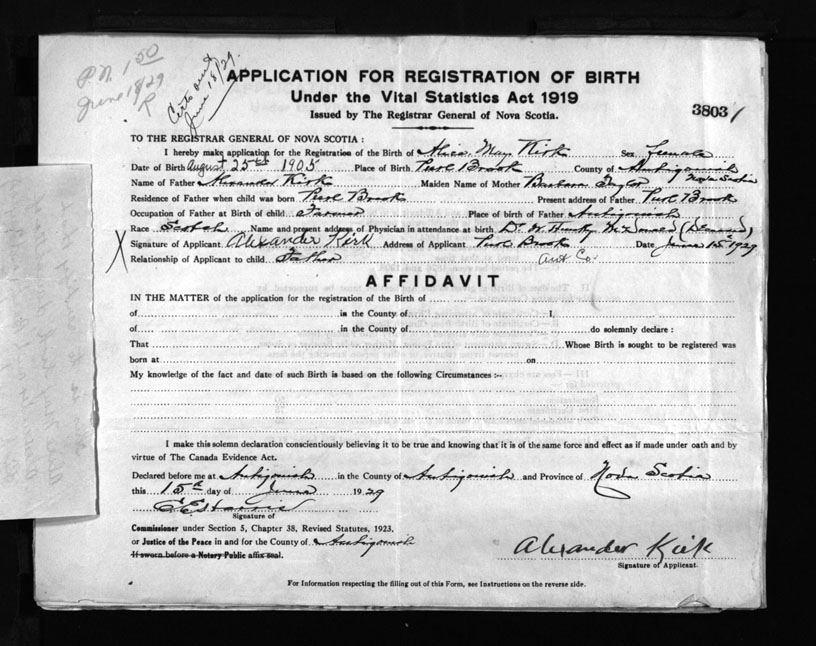 P.N. 1.50
June 18/29
R
Certs sent
June 18/29.
APPLICATION FOR REGISTRATION OF BIRTH
Under the Vital Statistics Act 1919
Issued by The Registrar General of Nova Scotia.
3803
TO THE REGISTRAR GENERAL OF NOVA SCOTIA :
I hereby make application for the Registration of the Birth of Alice May Kirk Sex female
Date of Birth August 25th 1905 Place of Birth Purl Brook County of Antigonish Nova Scotia
Name of Father Alexander Kirk Maiden Name of Mother Barbara Taylor
Residence of Father when child was born Purl Brook Present address of Father Purl Brook
Occupation of Father at Birth of child Farmer Place of birth of Father Antigonish
Race Scotch Name and present address of Physician in attendance at birth Dr. W. Huntly McDonald (Deceased)
Signature of Applicant Alexander Kirk Address of Applicant Purl Brook Date June 15 1929
X Relationship of Applicant to child Father Ant Co.
AFFIDAVIT
IN THE MATTER of the application for the registration of the Birth of
of in the County of I,
of in the County of do solemnly declare :
That Whose Birth is sought to be registered was
born at on
My knowledge of the fact and date of such Birth is based on the following Circumstances :–
I make this solemn declaration conscientiously believing it to be true and knowing that it is of the same force and effect as if made under oath and by
virtue of The Canada Evidence Act.
Declared before me at Antigonish in the County of Antigonish and Province of Nova Scotia
this 15th day of June 1929
Signature of
Commissioner under Section 5, Chapter 38, Revised Statutes, 1923.
or Justice of the Peace in and for the County of Antigonish
If sworn before a Notary Public affix seal.
Alexander Kirk
Signature of Applicant.
For Information respecting the filling out of this Form, see Instructions on the reverse side.